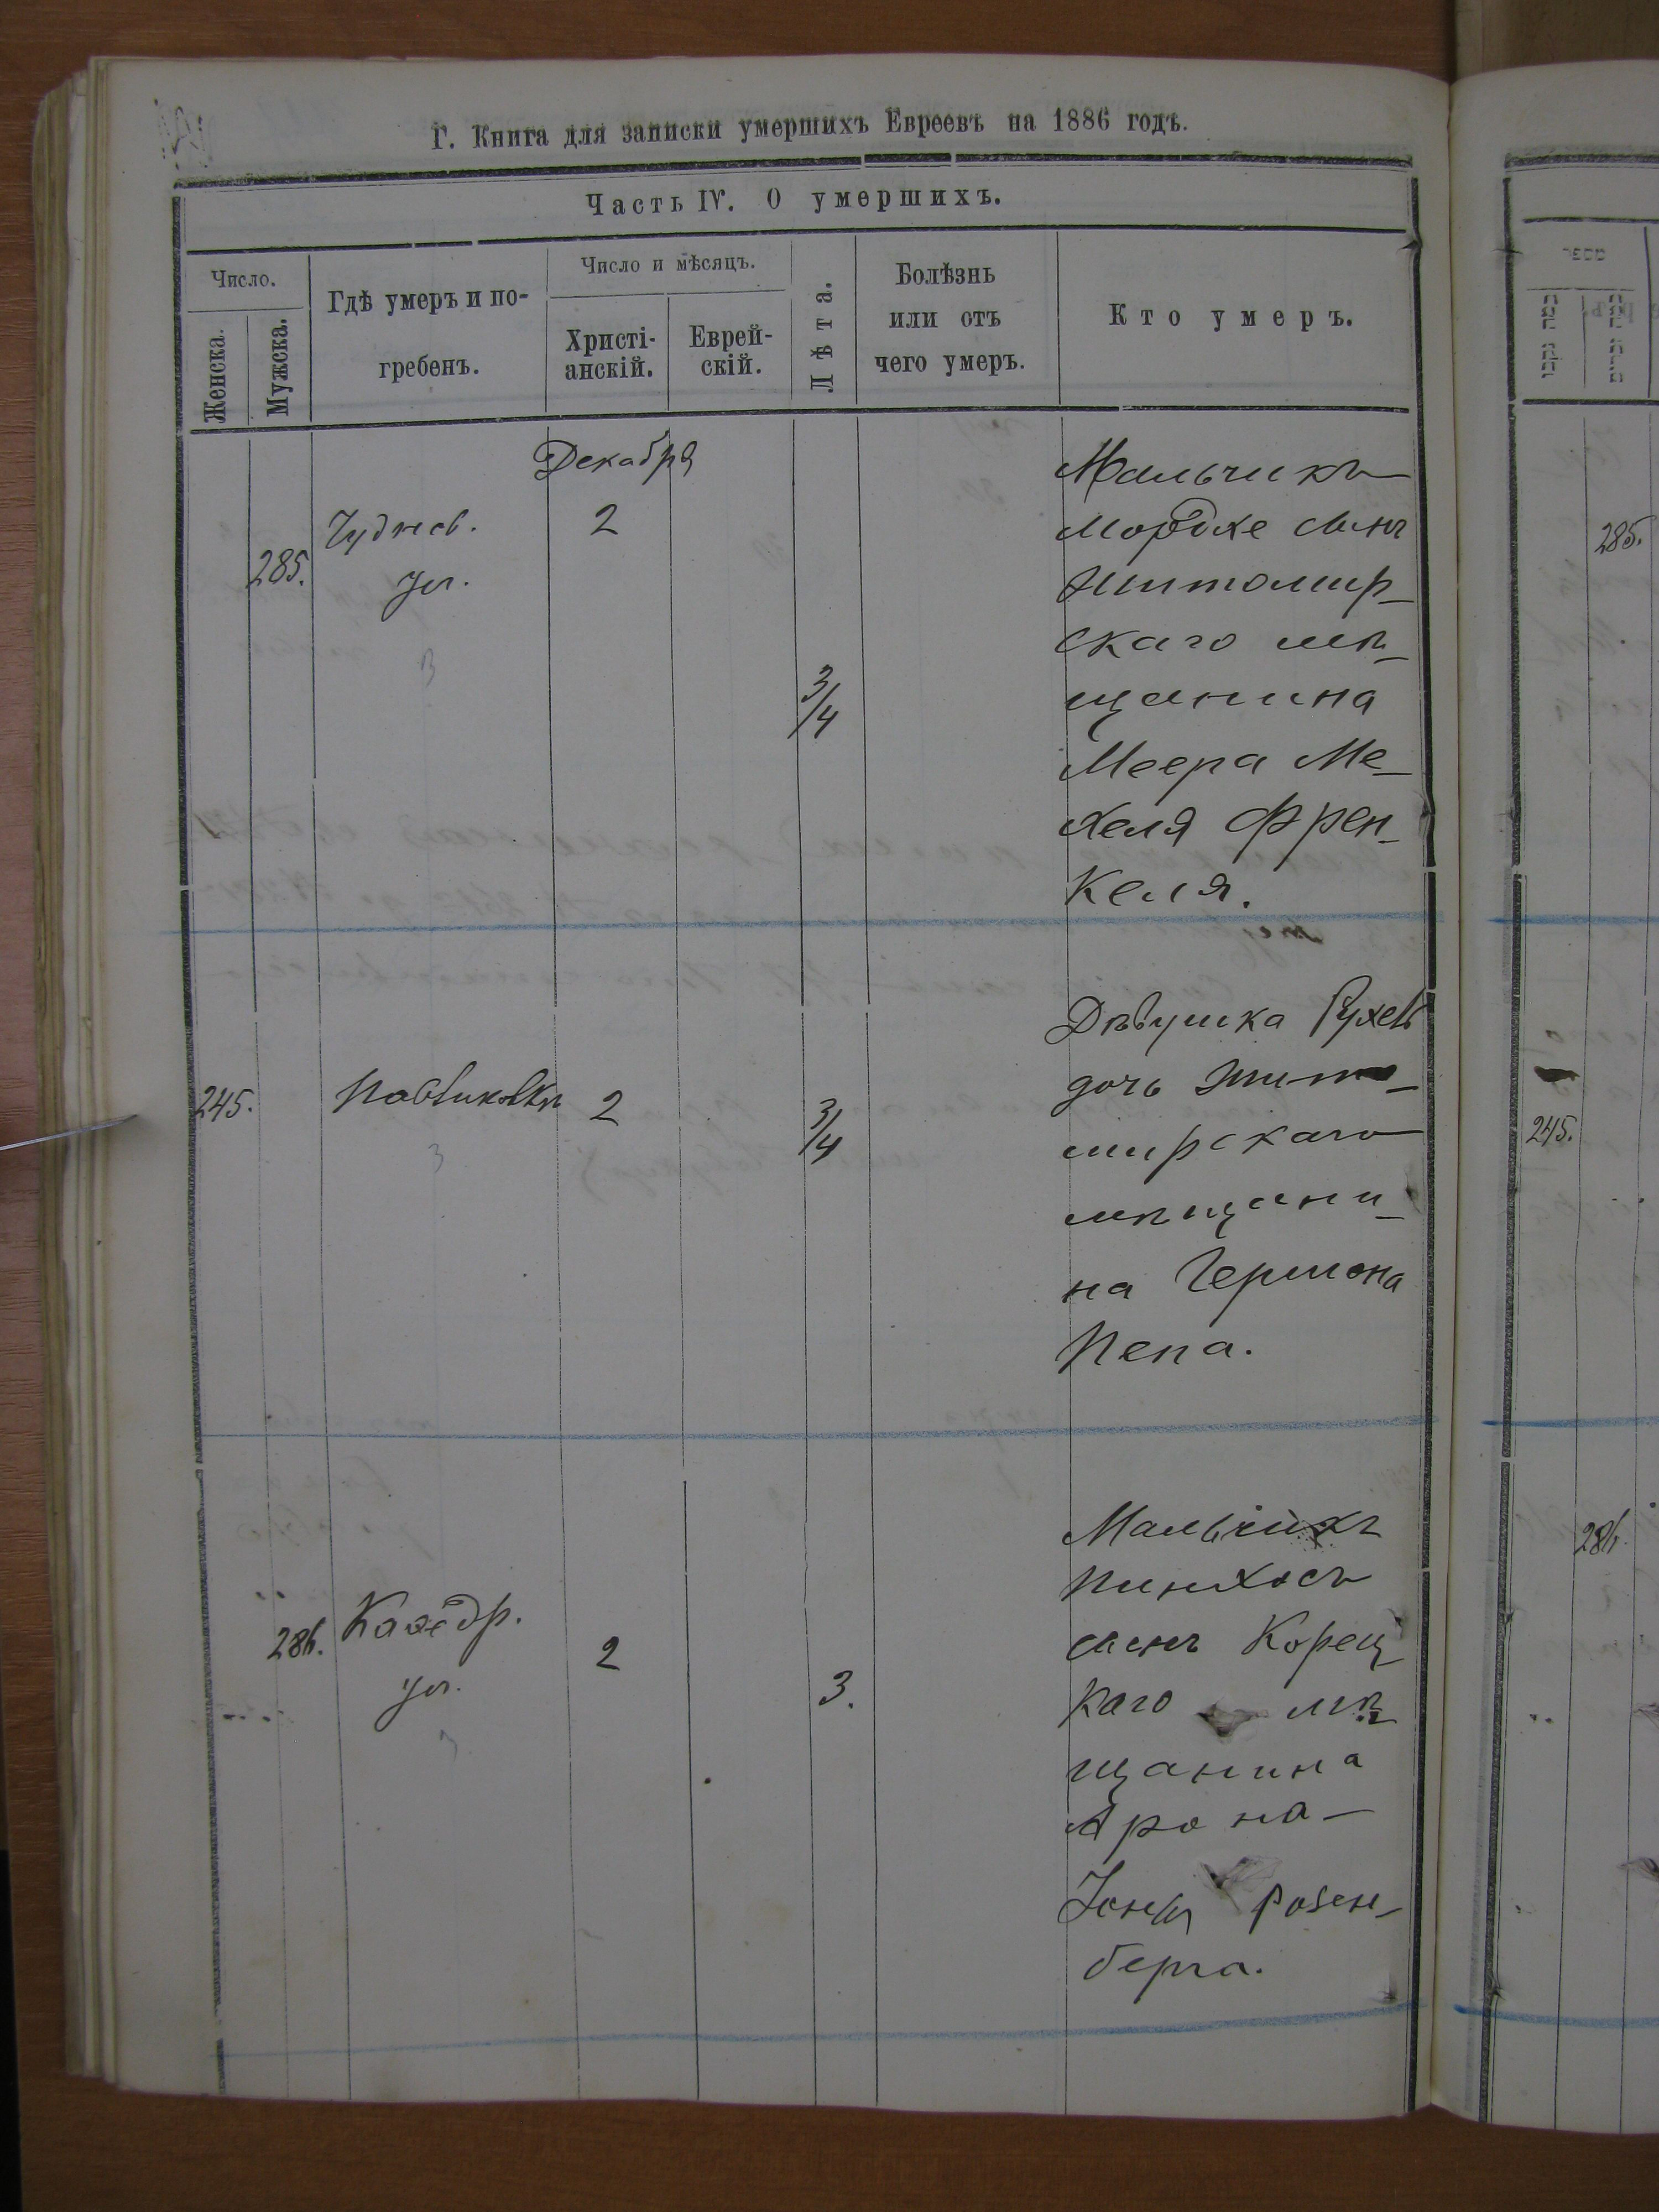 Г. Книга для записки умершихъ Евреевъ на 1886 годъ.
Часть IV. О умершихъ.
Число.
Женска.
Мужска.
Гдѣ умеръ и по-
гребенъ.
Число и мѣсяцъ.
Христі-
анскій.
Еврей-
скій.
Лѣта.
Болѣзнь
или отъ
чего умеръ.
Кто умеръ.
Декабря
285.
Чуднов.
ул.
2
3/4
Мальчикъ
Мордхе сынъ
Житомир-
скаго мѣ-
щанина
Меера Ме-
хеля Френ-
келя.
245.
Павликовкѣ
2
3/4
Дѣвушка Рухель
дочь Жито-
мирскаго
мѣщани-
на Гершона
Пепа.
286.
Каѳедр.
ул.
2
3.
Мальчикъ
Пинхосъ
сынъ Корец-
каго мѣ-
щанина
Арона-
Розен-
берга.
מספר
285.
245.
286.